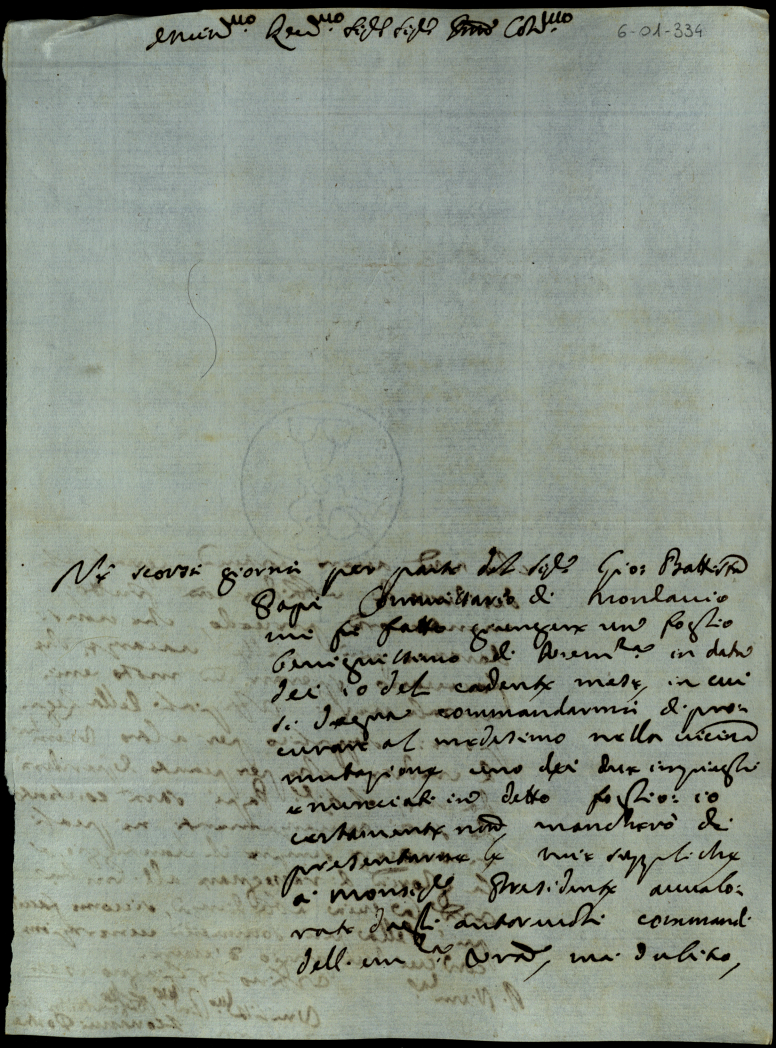 Emin.mo Rev.mo Sig.r Sig.r P.ron Col.mo
6-01-334
Ne scorsi giorni per parte del Sig.r Gio: Battista
Papi Commissario di Mondavio
mi fu fatto giungere un foglio
benignissimo di in data
dei 10 del cadente mese, in cui
si degna commandarmi di pro=
curare al medesimo nella vicina
mutazione uno dei due impieghi
enunciati in detto foglio: io
certamente non mancherò di
presentarne le mie suppliche
a Monsig.r Presidente avvalo=
rate dagli autorevoli commandi
dell' Em.za V.ra, ma dubito,